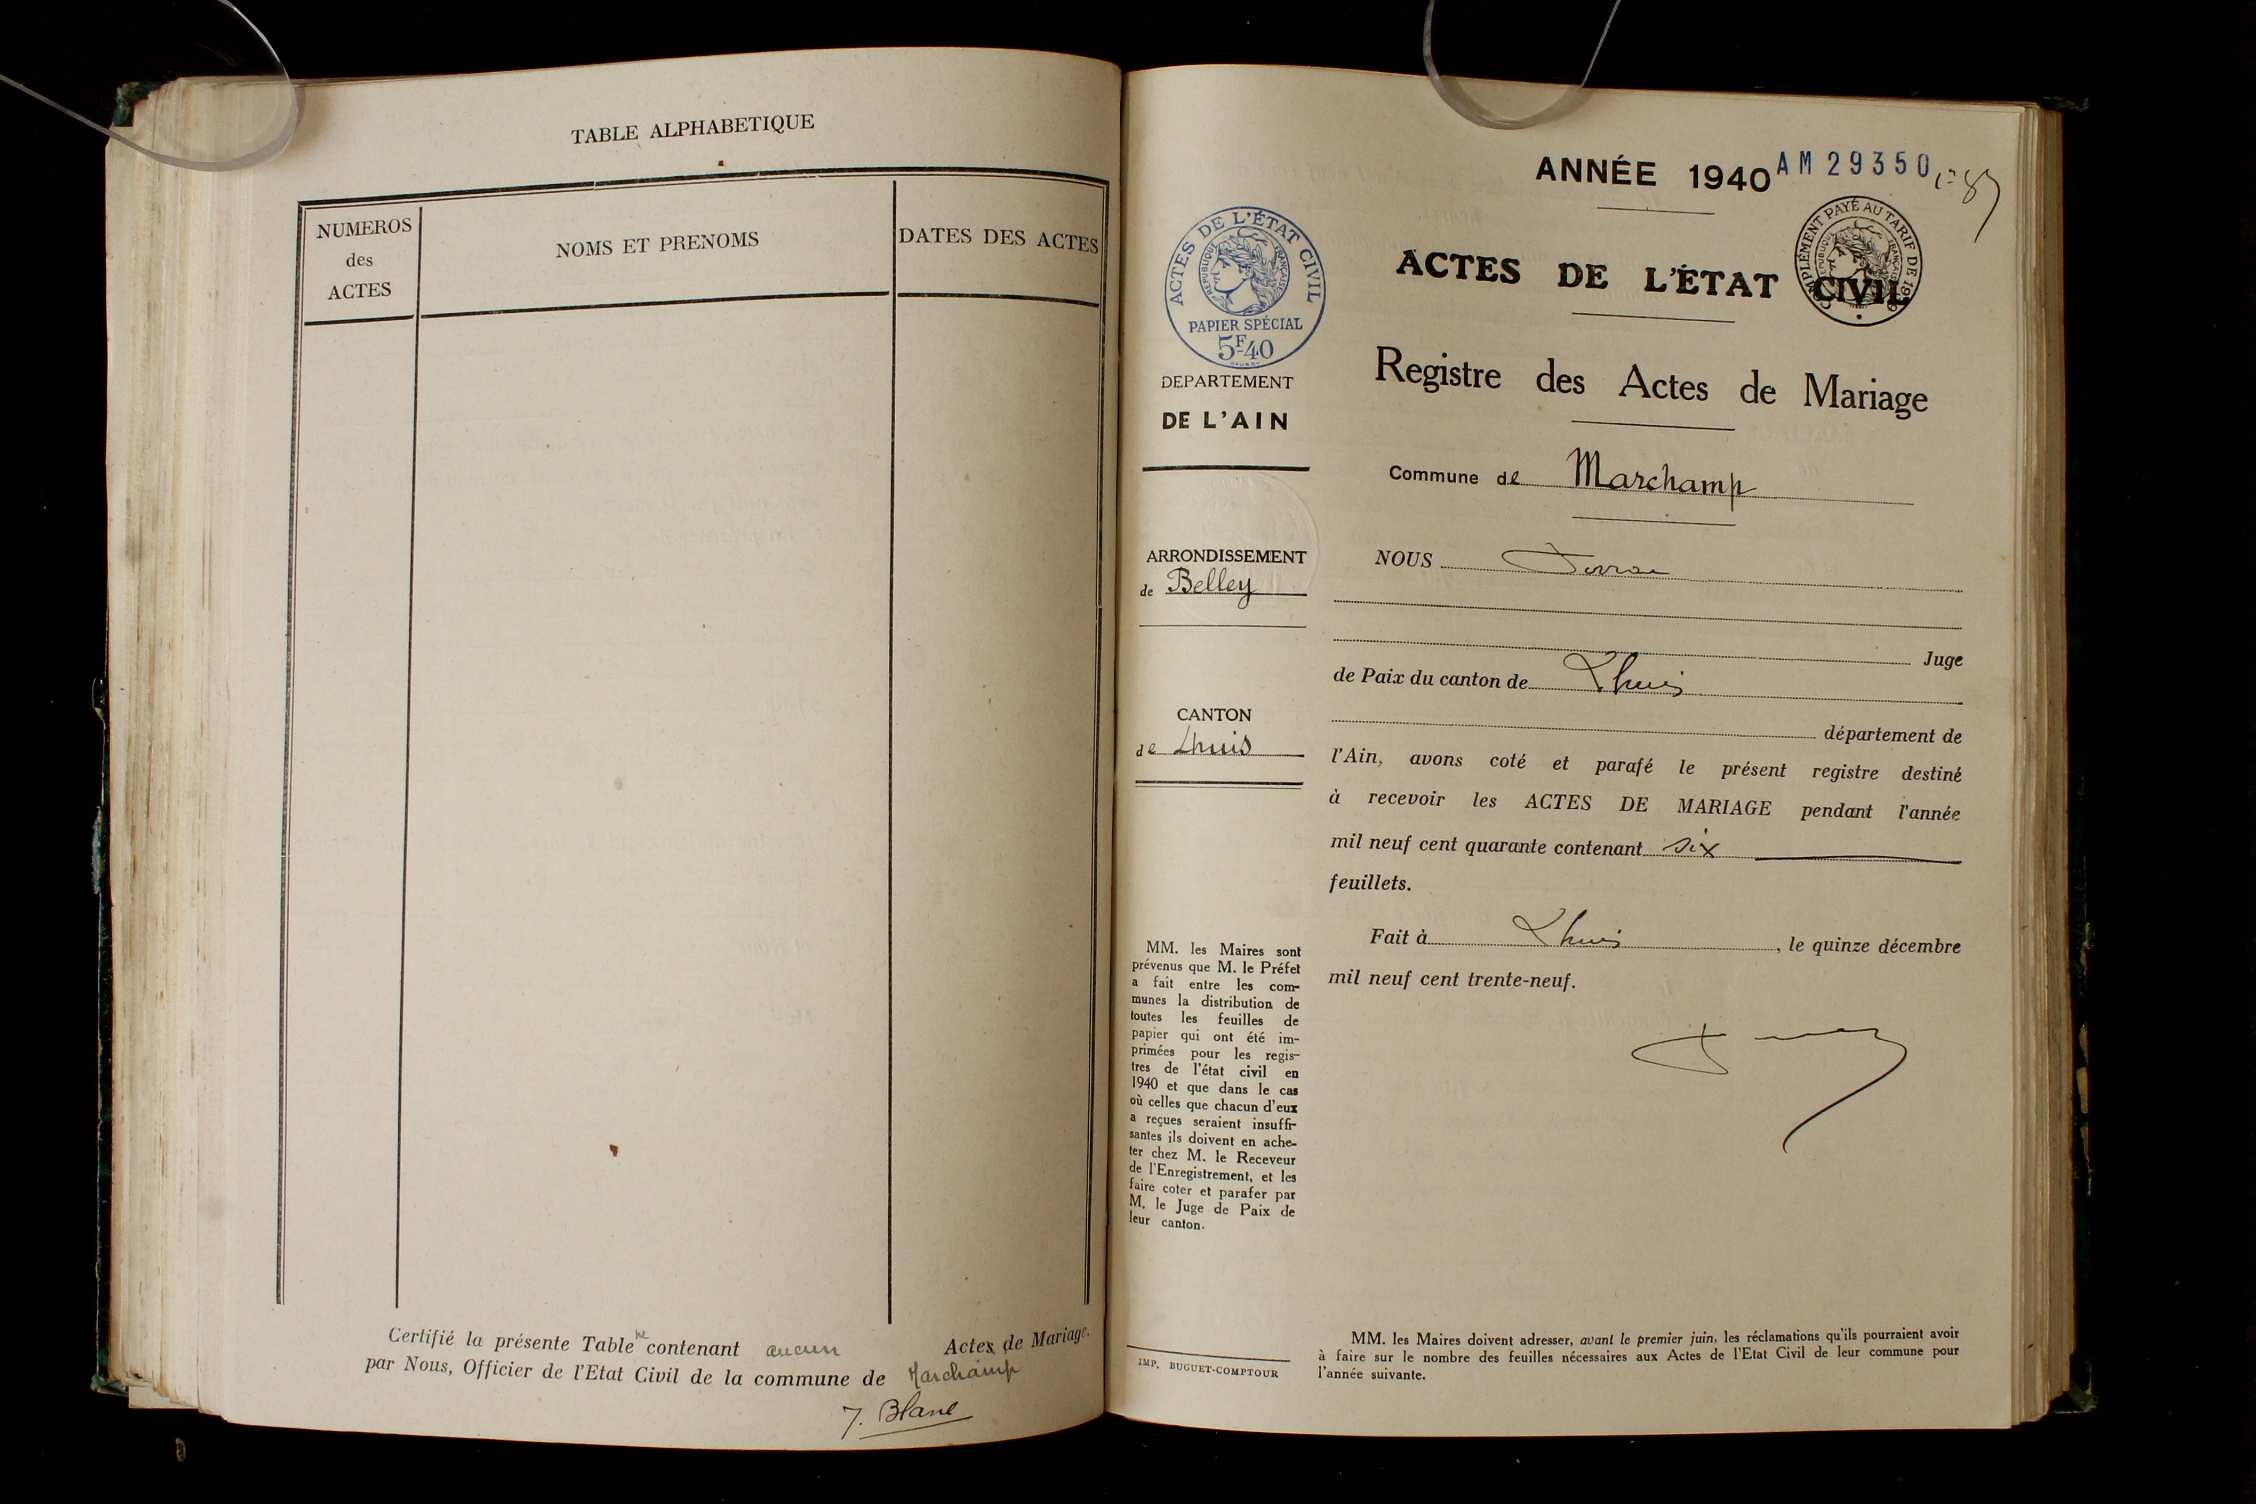 TABLE ALPHABETIQUE
NUMEROS
des
ACTES
NOMS ET PRENOMS
DATES DES ACTES
Certifié la présente Table ne contenant aucun Actes de Mariage.
par Nous, Officier de l'Etat Civil de la commune de Marchamp
J. Blanc
ANNÉE 1940
AM 29350
COMPLÉMENT PAYÉ AU TARIF DE 1939
RÉPUBLIQUE FRANÇAISE
ACTES DE L'ÉTAT CIVIL
RÉPUBLIQUE FRANÇAISE
PAPIER SPÉCIAL
5F.40
DEPARTEMENT
DE L'AIN
ARRONDISSEMENT
de Belley
CANTON
de Lhuis
MM. les Maires sont
prévenus que M. le Préfet
a fait entre les com-
munes la distribution de
toutes les feuilles de
papier qui ont été im-
primées pour les regis-
tres de l'état civil en
1940 et que dans le cas
où celles que chacun d'eux
a reçues seraient insuffi-
santes ils doivent en ache-
ter chez M. le Receveur
de l'Enregistrement, et les
faire coter et parafer par
M. le Juge de Paix de
leur canton.
IMP. BUGUET-COMPTOUR
ACTES DE L'ÉTAT CIVIL
Registre des Actes de Mariage
Commune de Marchamp
NOUS
Juge
de Paix du canton de Lhuis
département de
l'Ain, avons coté et parafé le présent registre destiné
à recevoir les ACTES DE MARIAGE pendant l'année
mil neuf cent quarante contenant six
feuillets.
Fait à Lhuis, le quinze décembre
mil neuf cent trente-neuf.
MM. les Maires doivent adresser, avant le premier juin, les réclamations qu'ils pourraient avoir
à faire sur le nombre des feuilles nécessaires aux Actes de l'Etat Civil de leur commune pour
l'année suivante.